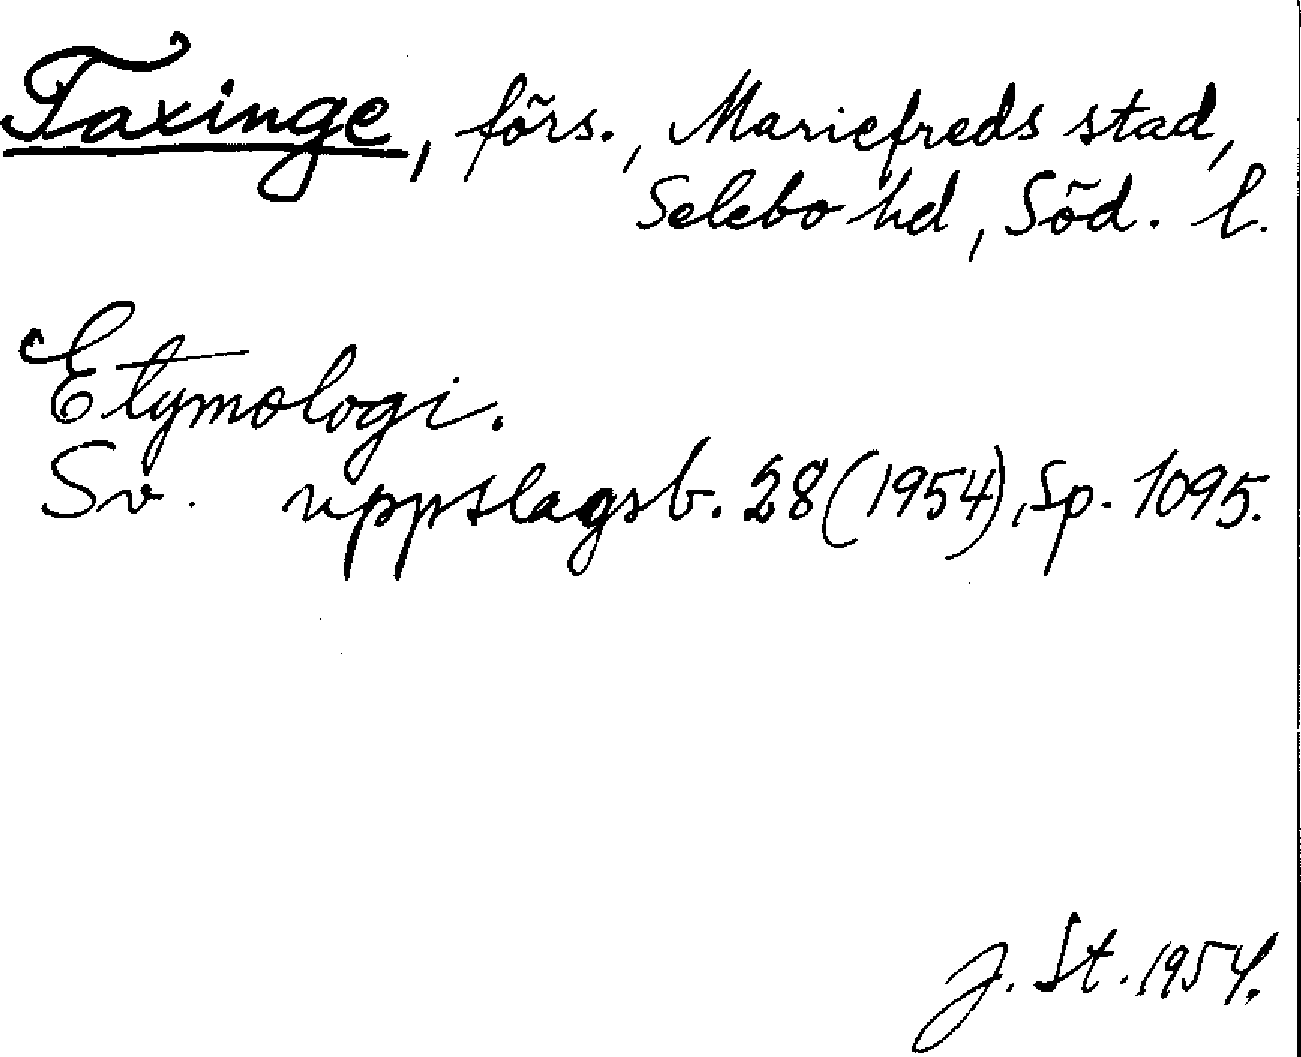 Taxinge, förs., Mariefreds stad,
Selebo hd, Söd. l.
Etymologi.
Sv. uppslagsb. 28 (1954), Sp. 1095.
J. St. 1954.